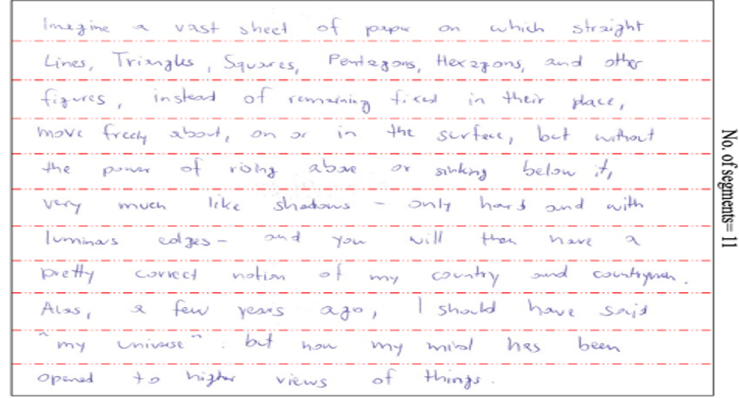 Imagine a vast sheet of paper on which straight
Lines, Triangles, Squares, Pentagons, Hexagons, and other
figures, instead of remaining fixed in their place,
move freely about, on or in the surface, but without
the power of rising above or sinking below it,
very much like shadows - only hard and with
luminous edges - and you will then have a
pretty correct notion of my country and countrymen.
Alas, a few years ago, I should have said
"my universe". but now my mind has been
opened to higher views of things.
No. of segments= 11